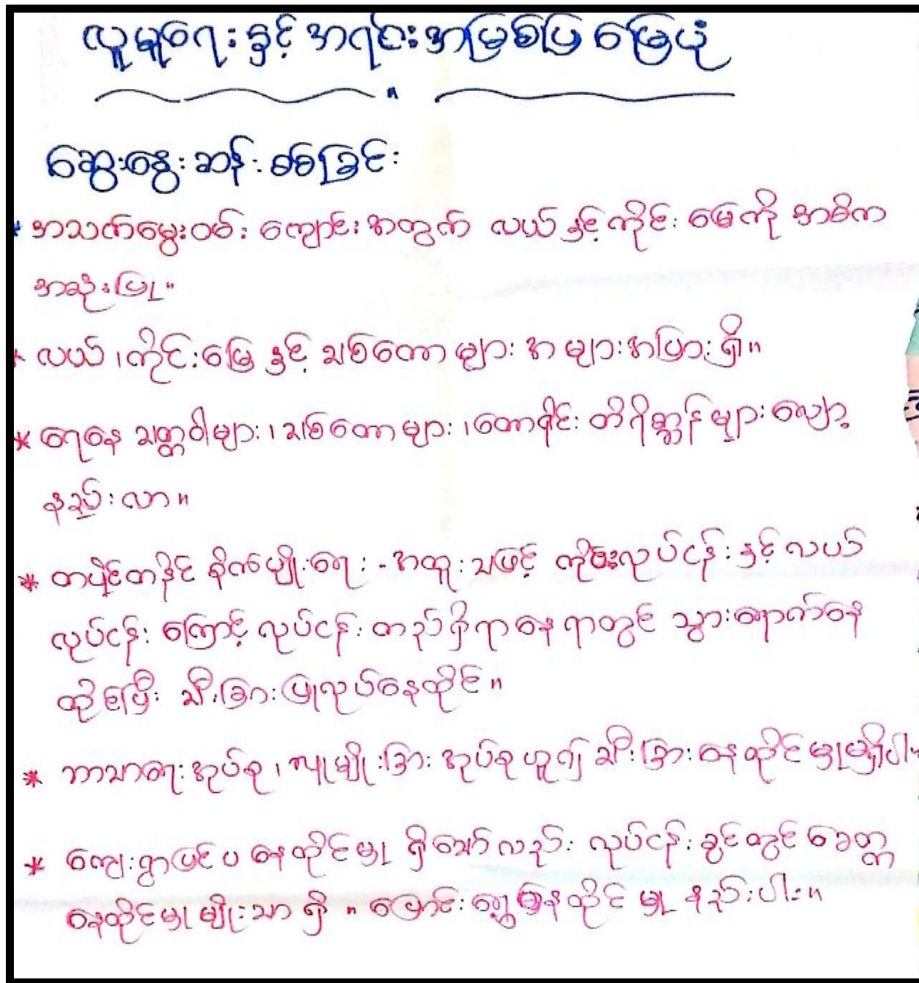 လူမှုရေးနှင့် အရင်းအမြစ်ပြ မြေပုံ
ဆွေးနွေးဆန်းစစ်ခြင်း
* အသက်မွေးဝမ်း ကျောင်းအတွက် လယ်နှင့်ကိုင်းမြေကို အဓိက
အသုံးပြု။
* လယ်၊ကိုင်းမြေ နှင့် သစ်တောများ အများအပြားရှိ။
* ရေနေ သတ္တဝါများ၊သစ်တောများ၊တောရိုင်း တိရိစ္ဆာန်များလျော့
နည်းလာ။
* တပိုင်တနိုင် စိုက်ပျိုးရေး - အထူးသဖြင့် ကိုင်းလုပ်ငန်းနှင့် လယ်
လုပ်ငန်းကြောင့် လုပ်ငန်းတည်ရှိရာနေရာတွင် သွားရောက်နေ
ထိုင်ပြီး သီးခြားပြုလုပ်နေထိုင်။
* ဘာသာရေးအုပ်စု၊လူမျိုးခြား အုပ်စုဟူ၍ သီးခြားနေထိုင်မှုမရှိပါ။
* ကျေးရွာပြင်ပ နေထိုင်မှု ရှိသော်လည်း လုပ်ငန်းခွင်တွင် ခေတ္တ
နေထိုင်မှုမျိုးသာ ရှိ။ ပြောင်းရွှေ့နေထိုင်မှု နည်းပါး။